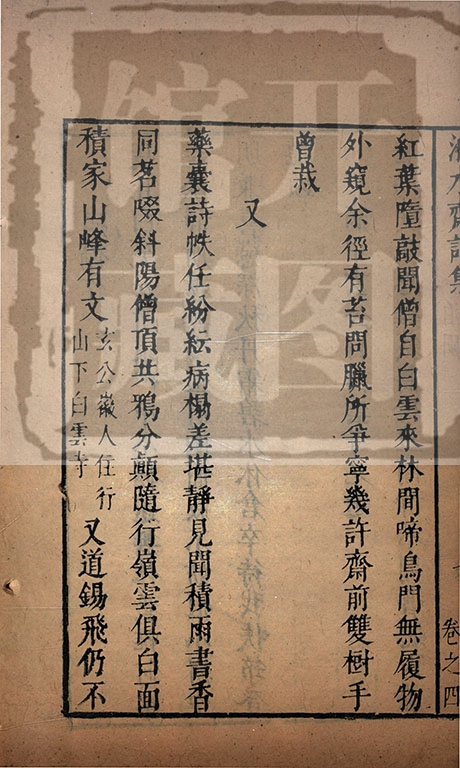 水齋詩集 卷之四
紅葉墮敲聞僧自白雲來林間啼鳥門無履物
外窺余徑有苔問臘所爭寧幾許齋前雙樹手
曾栽
又
藥囊詩帙任紛紜病榻差堪靜見聞積雨書香
同茗啜斜陽僧頂共鴉分顛隨行嶺雲俱白面
積家山峰有文玄公徽人住行山下白雲寺又道錫飛仍不